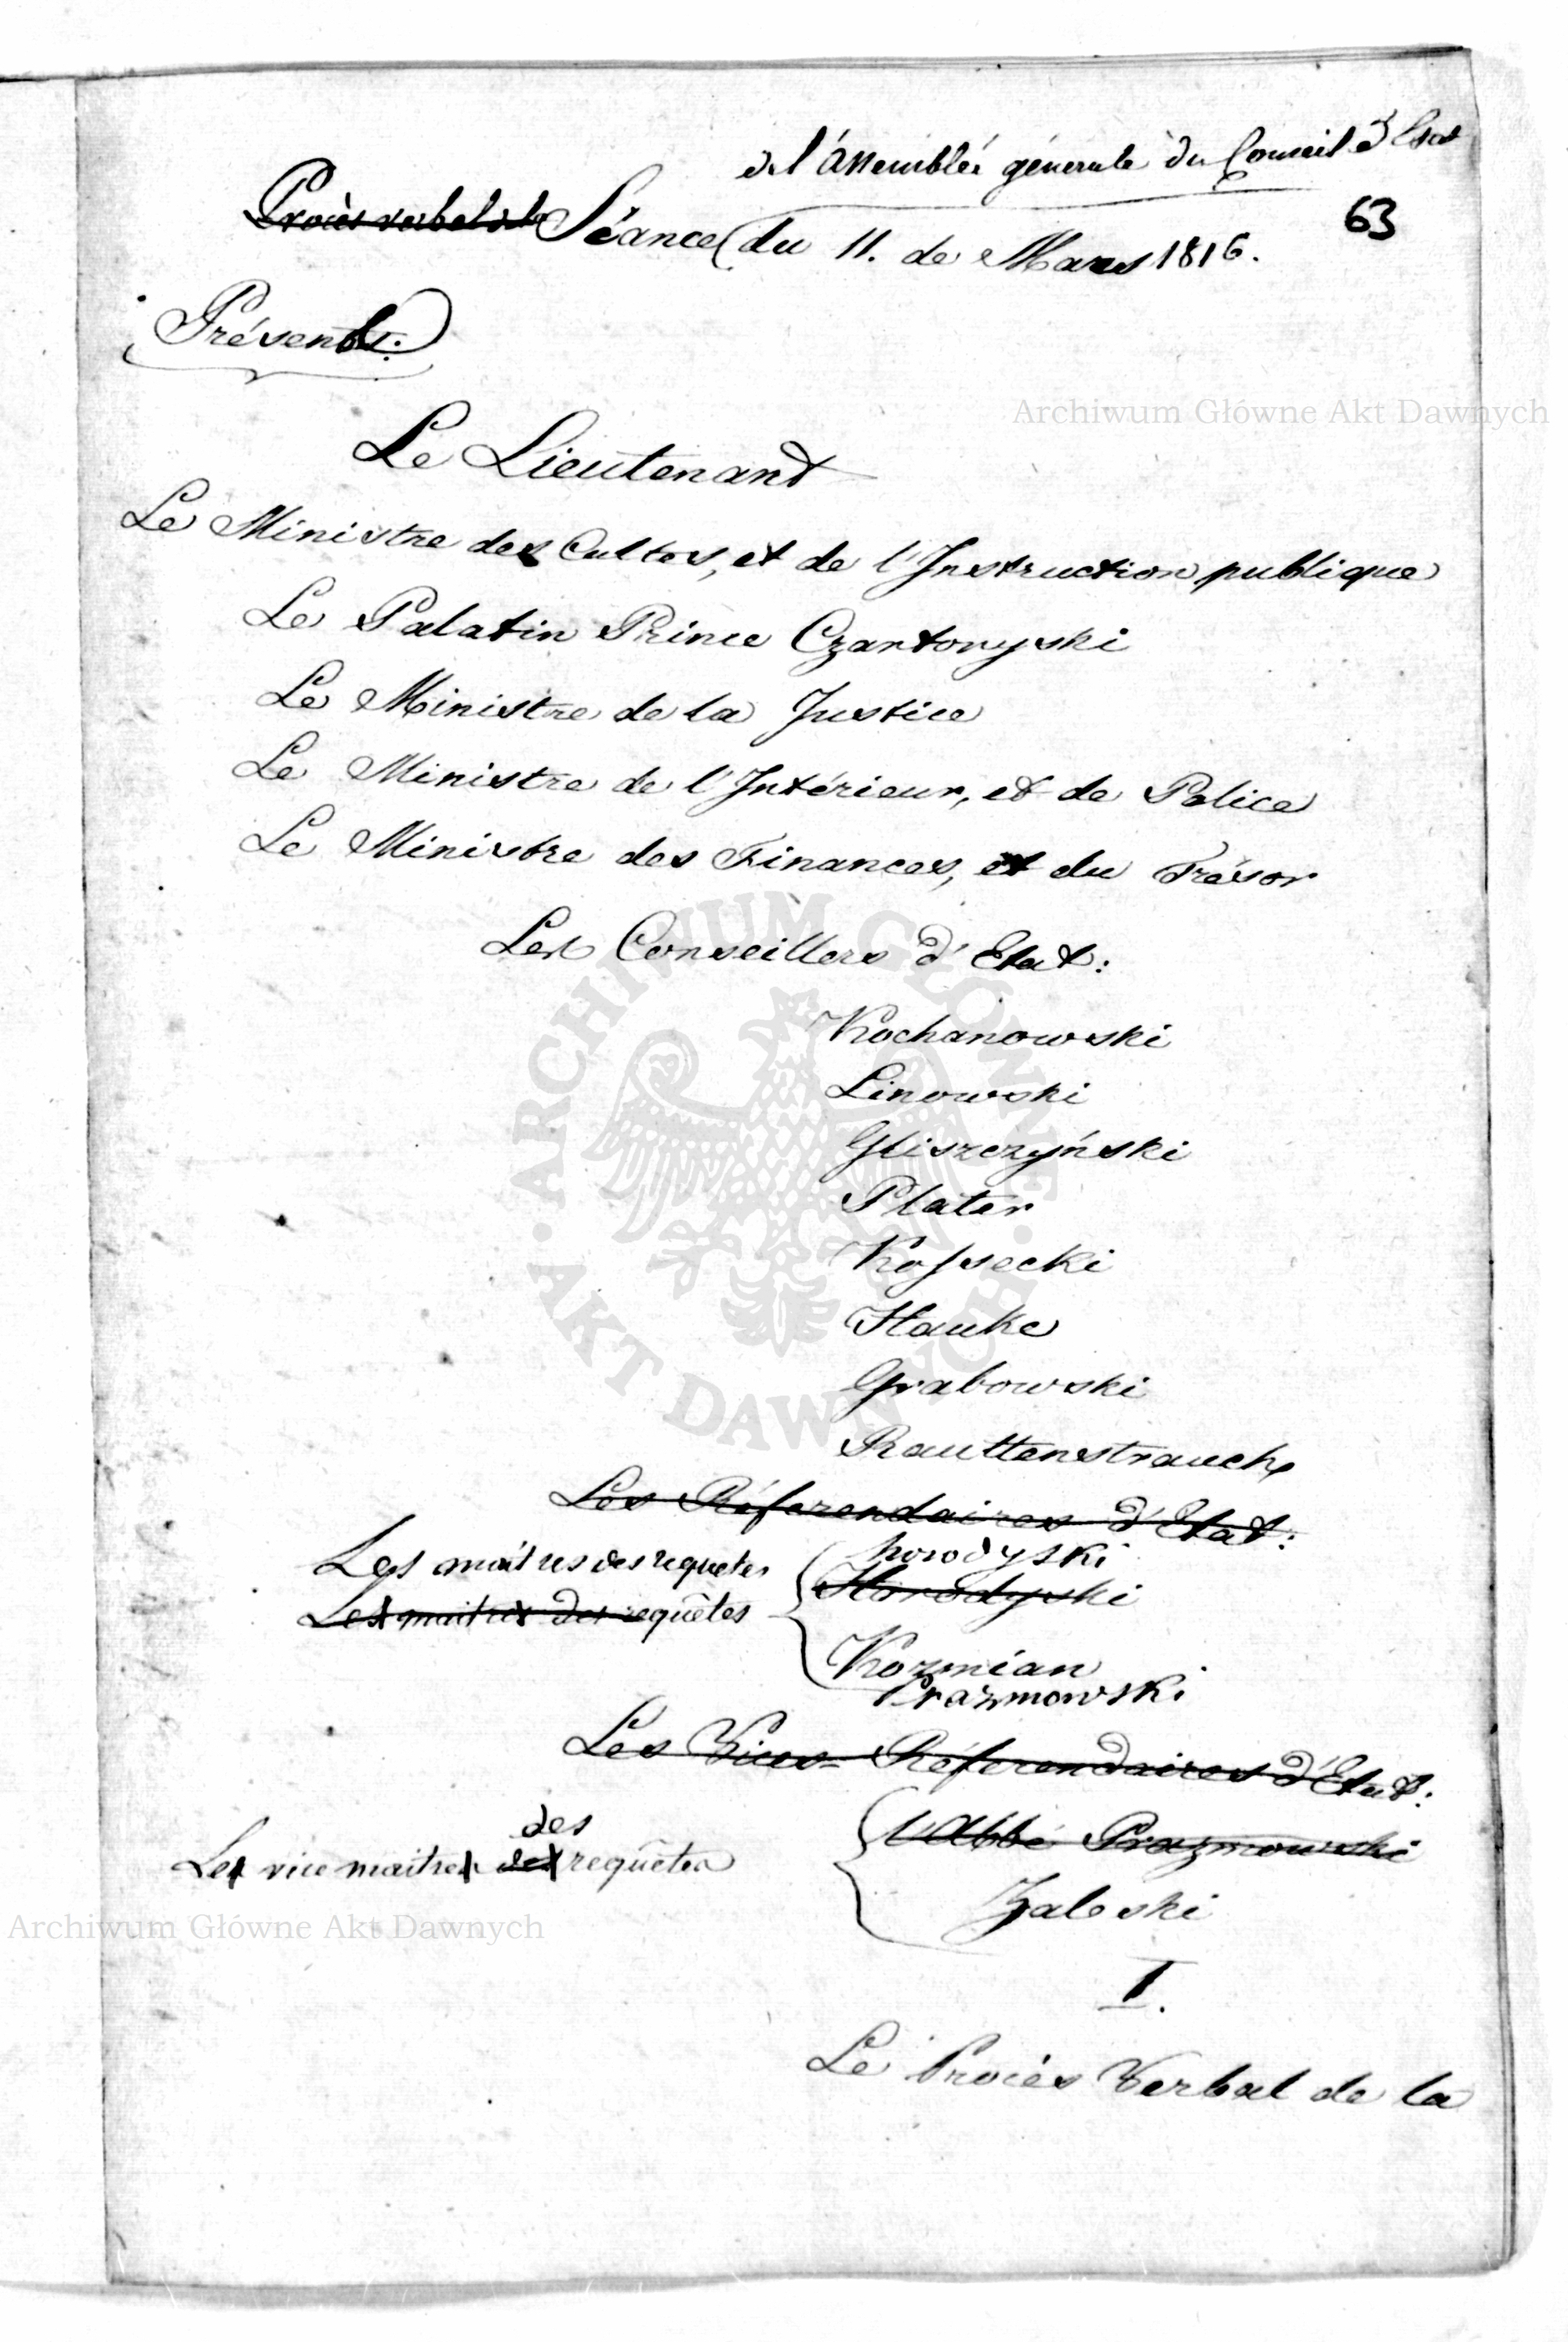 de l'Assemblée générale du Conseil d'Etat
63
Procès verbal de la Séance du 11. de Mars 1816.
Présents:
Archiwum Główne Akt Dawnych
Le Lieutenant
Le Ministre des Cultes, et de l'Instruction publique
Le Palatin Prince Czartoryski
Le Ministre de la Justice
Le Ministre de l'Intérieur, et de Police
Le Ministre des Finances, et du Trésor
Les Conseillers d'Etat:
Kochanowski
Linowski
Gliszczyński
Plater
Kossecki
Hauke
Grabowski
Rauttenstrauch
Les Réferendaires d'Etat:
Les maîtres des requetes horodyski
Les maitres des requêtes Horodyski
Kozmian
Prazmowski
Les Vices-Réferendaires d'Etat:
l'Abbé Prazmowski
des
Les vice maitres des requêtes
Zaleski
Archiwum Główne Akt Dawnych
I.
Le Procès Verbal de la
ARCHIWUM GŁÓWNE
AKT DAWNYCH